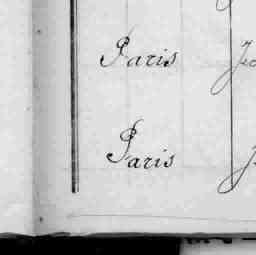 Paris
Paris